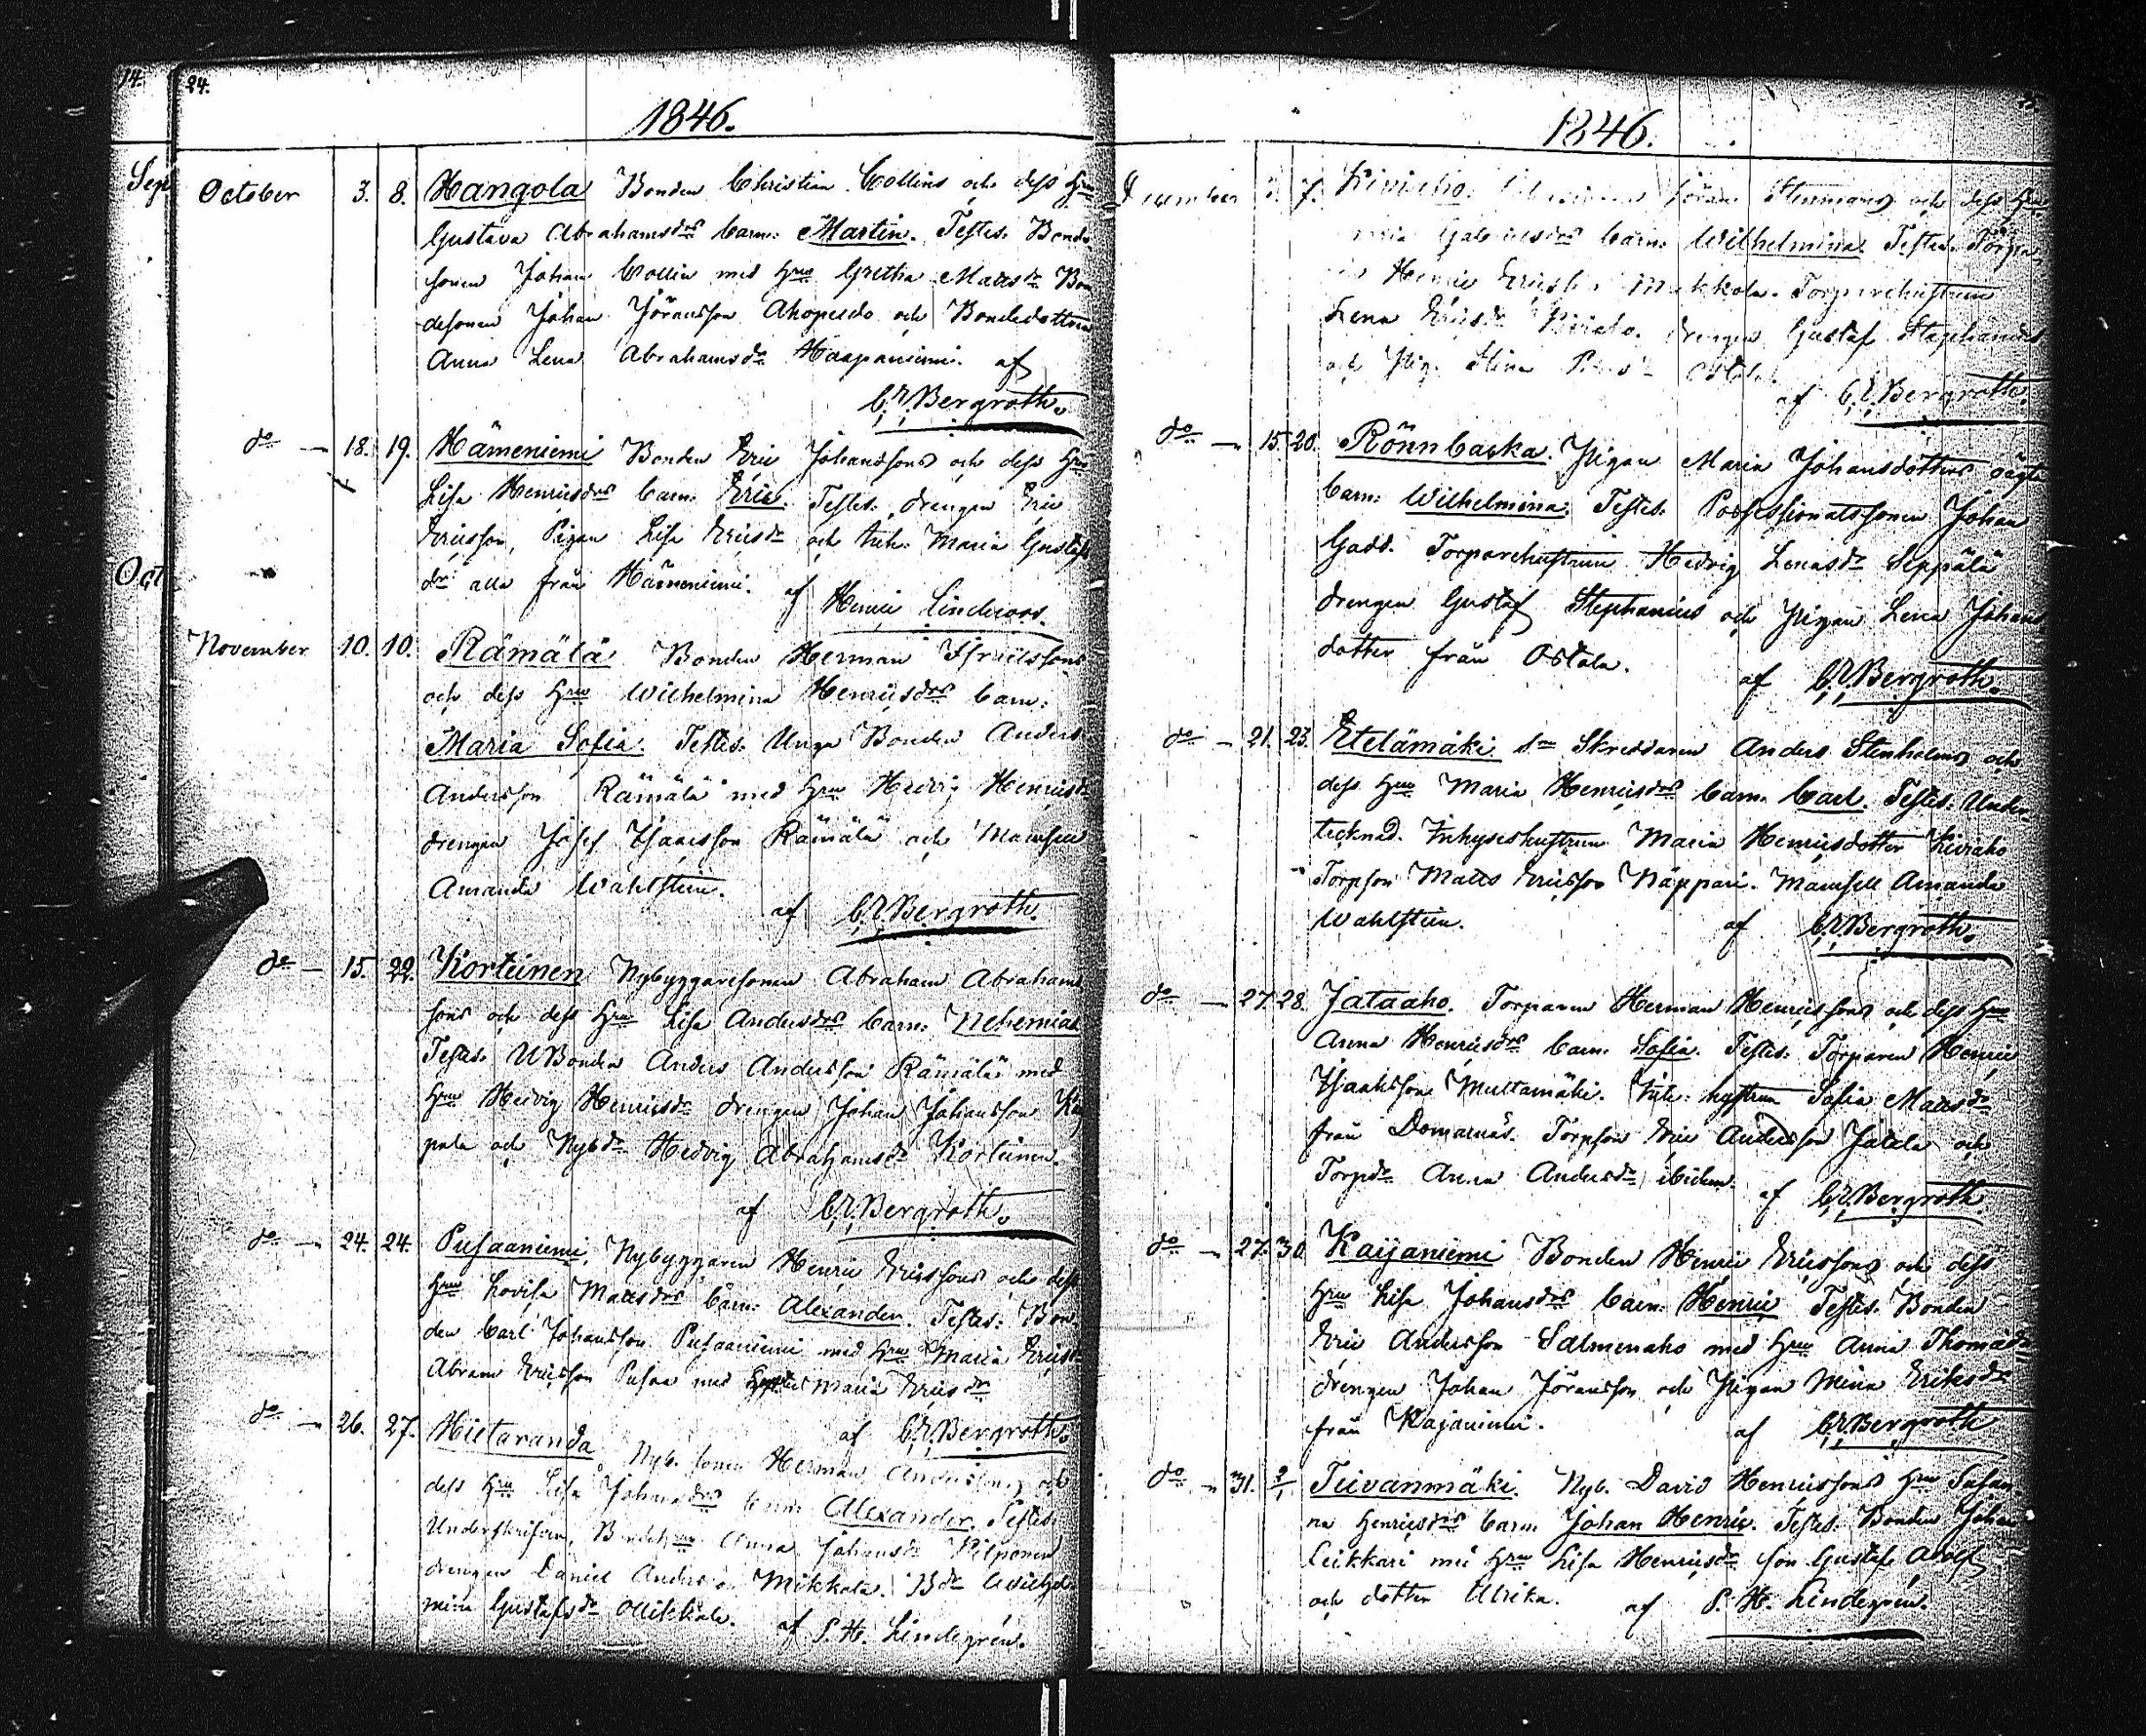 14.
24.
1846.
Sept
October 3. 8. Hangola Bonden Christian Collins och dess Hru
Gustava Abrahamsdrs barn: Martin. Testes. Bonde
sonen Johan Collin med Hru Gretha Matsdr Bon
desonen Johan Jöransson Ahopelto och Bondedottren
Anna Lena Abrahamsdr Haapaniemi. af
C.E. Bergroth.
do — 18. 19. Hämeniemi Bonden Eric Johanssons och dess Hru
Lisa Henricsdrs barn: Eric. Testes. drengen Eric
Ericsson, Pigan Lisa Ericsdr och Inh. Maria Gustafs
dr alla från Hämeniemi. af Henric Linderoos.
Oct
November 10. 10. Rämälä Bonden Herman Isracssons
och dess Hru Wilhelmina Henricsdrs barn:
Maria Sofia. Testes. Unga Bonden Anders
Andersson Rämälä med Hru Hedvig Henricsdr
drengen Josef Isaacsson Rämälä och Mamsell
Amanda Wahlstein.
af C.E. Bergroth.
do — 15. 22. Korteinen Nybyggaresonen Abraham Abrahams
sons och dess Hru Lisa Andersdrs barn: Nehemias
Testes. UBonden Anders Andersson Rämälä med
Hru Hedvig Henricsdr drengen Johan Johansson
pala och Nybdr Hedvig Abrahamsdr Korteinen.
af C.E. Bergroth.
do — 24. 24. Pusaaniemi, Nybyggaren Henric Ericssons och dess
Hru Lovisa Matsdrs barn: Alexander. Testes: Bon
den Carl Johansson Pusaaniemi med Hru Maria Ericsdr
Abram Ericsson Pusaa med Maria Ericsdr
af C.E. Bergroth.
do — 26. 27. Hietaranda Nyb. sonen Herman Anderssons och
dess Hru Lisa Johansdrs barn Alexander. Testes.
Underskrifven, Bondehru Anna Johansdr Piiponen
drengen Daniel Andersson Mikkola. Bdr Wilhel
mina Gustafsdr Mikkola. af P.H. Lindegrén.
1846.
December 7. Kiviaho. Jöran Stenmans och dess Hru
Maria Gabrielsdrs barn: Wilhelmina. Testes. Torpa
Henric Ericsson Makkola. Torparehustrun
Lena Ericsdr Kiviaho. drengen Gustaf Stephanius
och Pig. Stina Ostola.
af C.E. Bergroth.
do — 15. 20. Rönnbacka. Pigan Maria Johansdotters oägta
barn: Wilhelmina. Testes. Possessionatssonen Johan
Gadd. Torparehustrun Hedvig Lenasdr Seppälä
drengen Gustaf Stephanius och Pigan Lena Johans
dotter från Ostola.
af C.E. Bergroth.
do — 21. 23. Etelämäki. Skreddaren Anders Stenholms och
dess Hru Maria Henricsdrs barn. Carl. Testes: Under
tecknad. Inhyseshustrun Maria Henricsdotter Kiviaho
Torpson Matts Ericsson Näppari. Mamsell Amanda
Wahlstein. af C.E. Bergroth.
do — 27. 28. Jataaho. Torparen Herman Henricssons och dess Hru
Anna Henricsdrs barn. Sofia. Testes: Torparen Henric
Isaaksson Multamäki. Inh: hustrun Sofia Matsdr
från Domarnäs. Torpson Eric Andersson Jatala och
Torpdr Anna Andersdr ibidem. af C.E. Bergroth.
do — 27. 30. Kaijaniemi Bonden Henric Ericssons och dess
Hru Lisa Johansdrs barn: Henric Testes. Bonden
Eric Andersson Salmenaho med Hru Anna Thomasdr
drengen Johan Jöransson och Pigan Mina Eriksdr
från Kajaniemi. af C.E. Bergroth
do — 31. 2/1 Teivanmäki. Nyb. David Henricssons Hru Susan
na Henricsdrs barn Johan Henric. Testes. Bonden Johan
Leikkari med Hru Lisa Henricsdr son Gustaf Adolf
och dotter Ulrika. af P.H. Lindegrén.